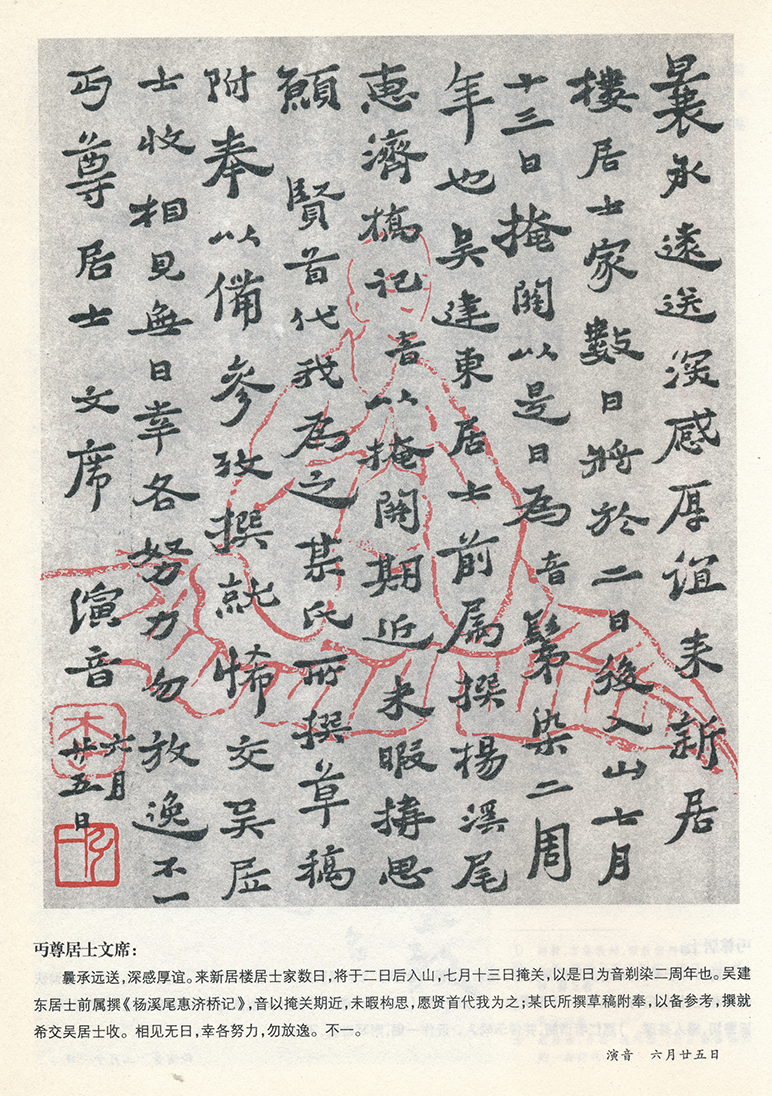 曩承遠送深感厚誼來新居
樓居士家數日將於二日後入山七月
十三日掩關以是日為音鬀染二周
年也吳建東居士前属撰楊溪尾
惠濟橋記音以掩關期近未暇搆思
願賢首代我為之某氏所撰草稿
附奉以備參攷撰就悕交吴居
士收相見無日幸各努力勿放逸不一
丏尊居士文席
演音
六月
廿五日
丏尊居士文席：
曩承远送，深感厚谊。来新居楼居士家数日，将于二日后入山，七月十三日掩关，以是日为音剃染二周年也。吴建
东居士前属撰《杨溪尾惠济桥记》，音以掩关期近，未暇构思，愿贤首代我为之；某氏所撰草稿附奉，以备参考，撰就
希交吴居士收。相见无日，幸各努力，勿放逸。不一。
演音 六月廿五日